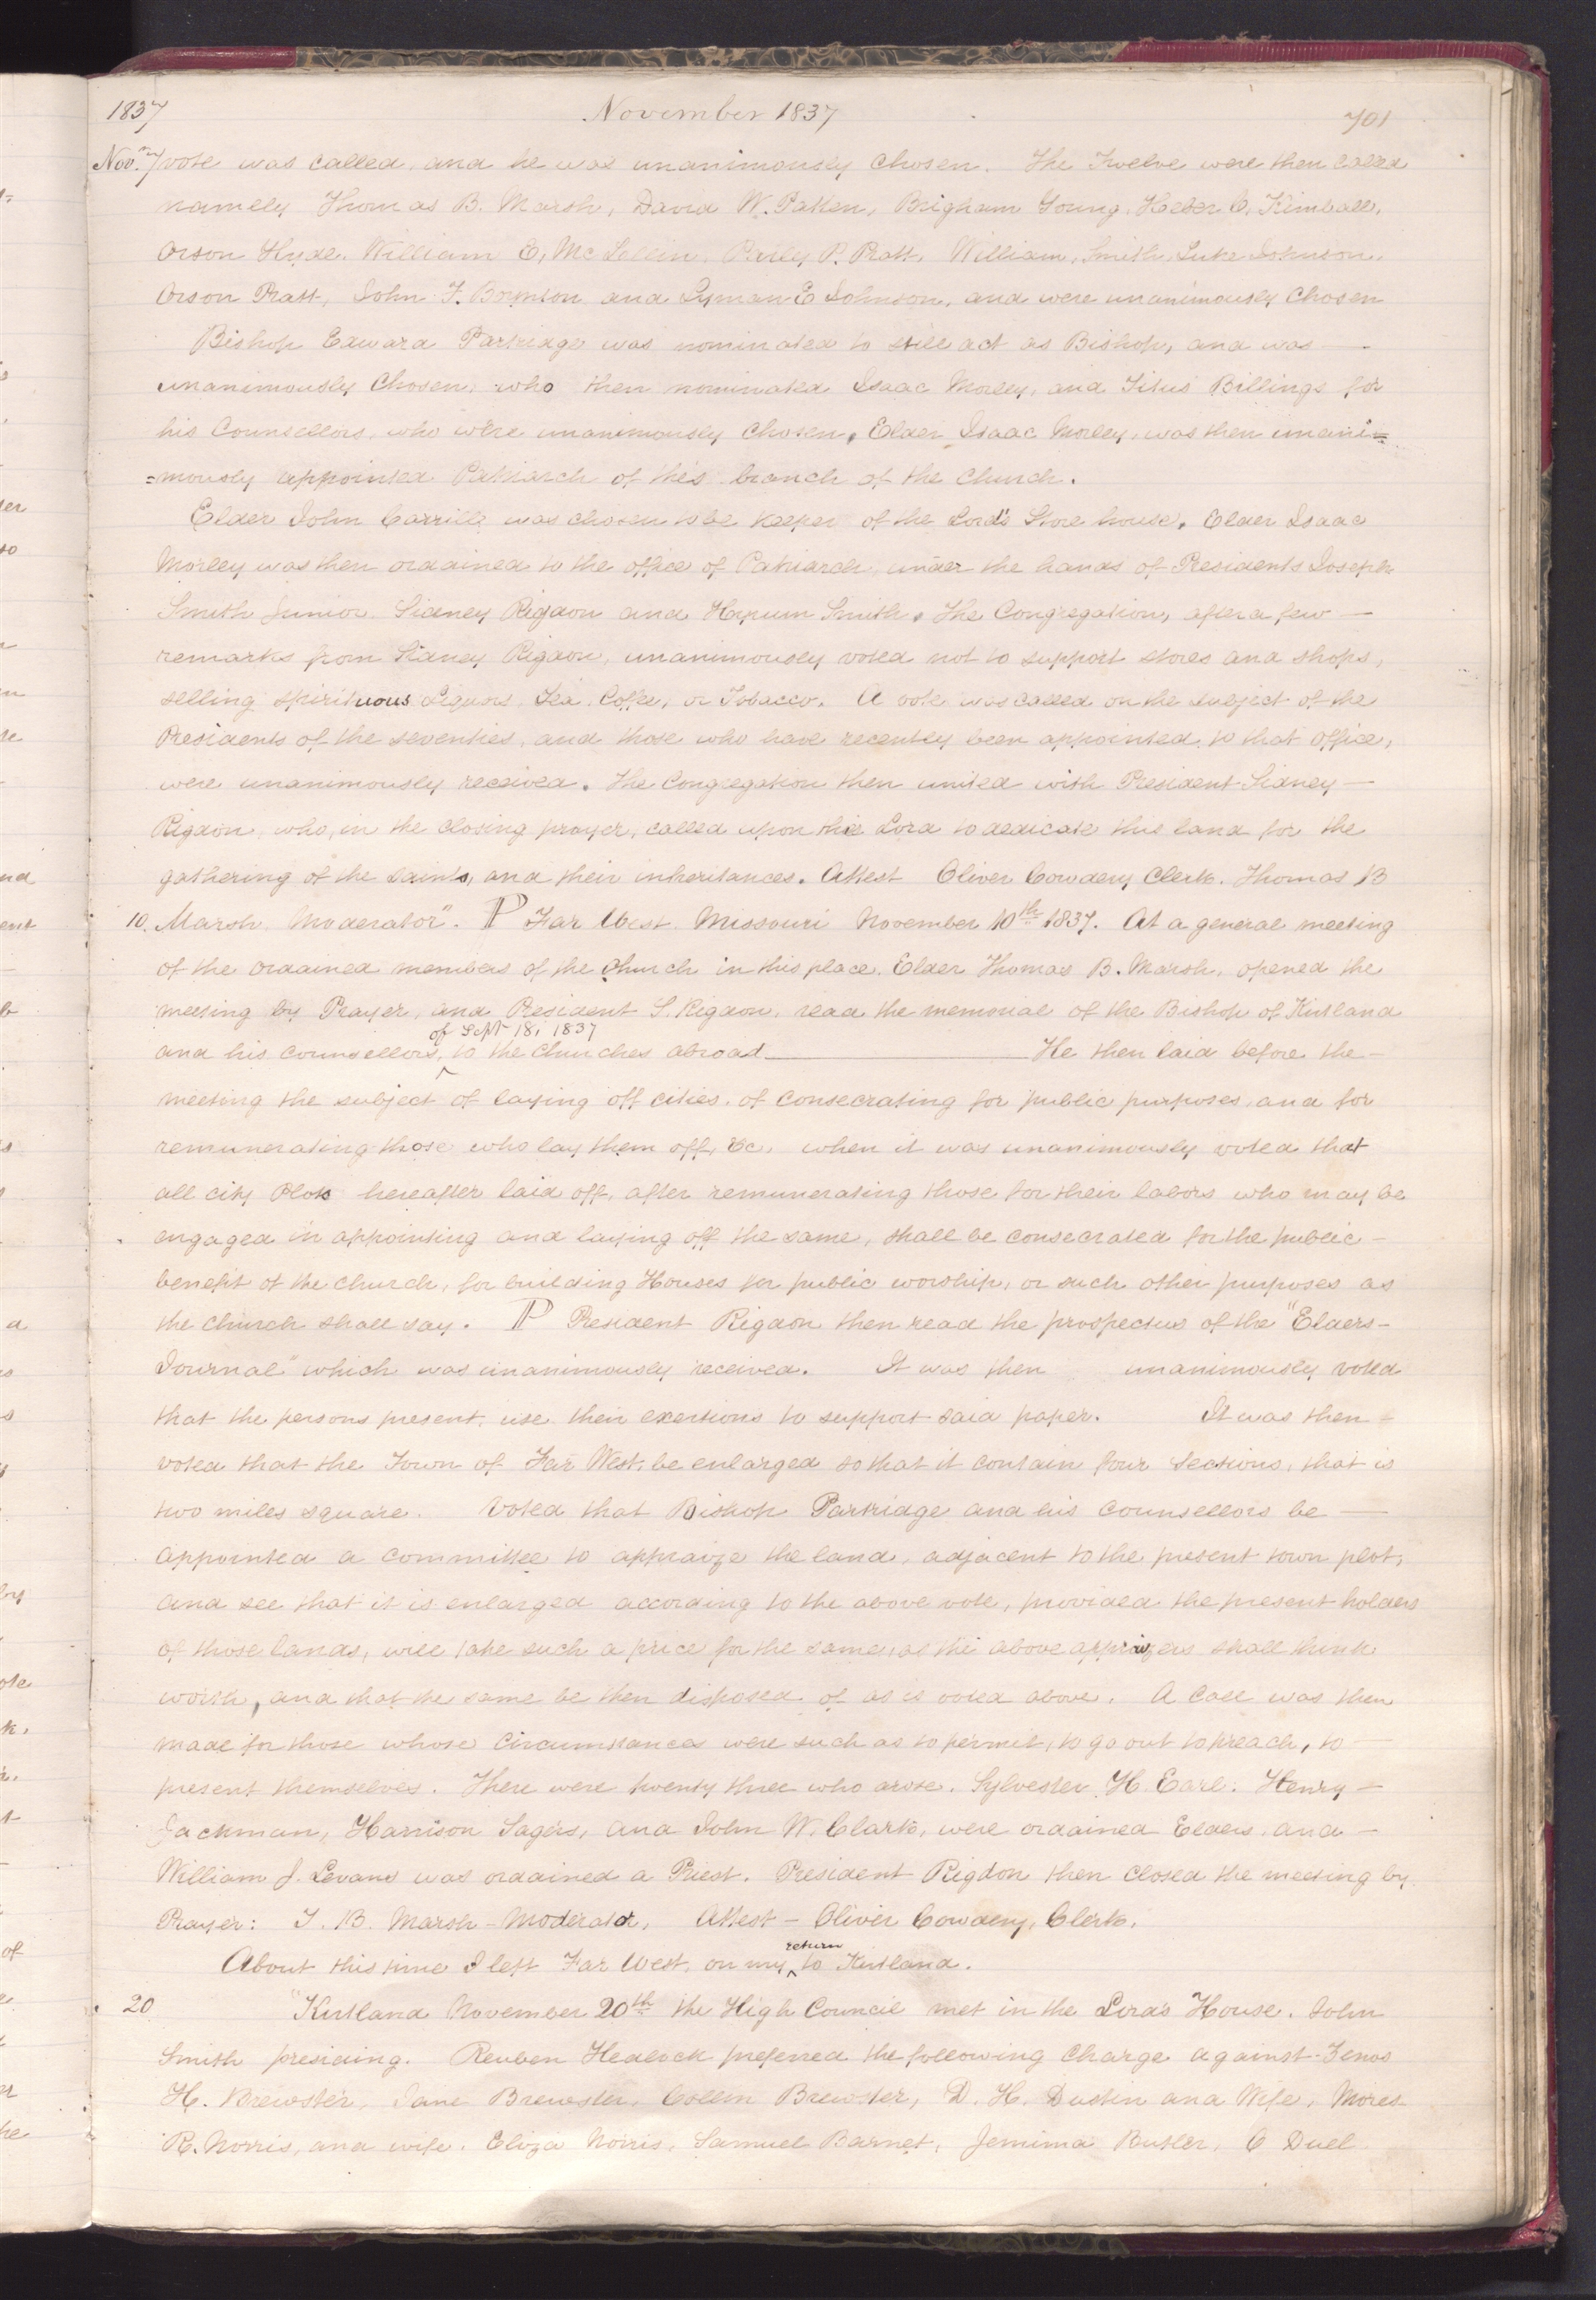 1837 November 1837 701
Nov. 7 vote was called, and he was unanimously chosen. The Twelve were then called
namely Thomas B. Marsh, David W. Patten, Brigham Young, Heber C. Kimball,
Orson Hyde, William E, Mc Lellin, Parley P. Pratt, William, Smith, Luke Johnson,
Orson Pratt, John F. Boynton and Lyman E Johnson, and were unanimously chosen
Bishop Edward Partridge was nominated to still act as Bishop, and was —
unanimously chosen, who then nominated Isaac Morley, and Titus Billings for
his Counsellors, who were unanimously chosen, Elder Isaac Morley, was then unani=
=mously appointed Patriarch of this branch of the church.
Elder John Corrill was chosen to be keeper of the Lord's Store house. Elder Isaac
Morley was then ordained to the office of Patriarch, under the hands of Presidents Joseph
Smith Junior Sidney Rigdon and Hyrum Smith, The Congregation, after a few —
remarks from Sidney Rigdon, unanimously voted not to support stores and shops,
selling spirituous Liquors Tea, Coffee, or Tobacco. A vote was called on the subject of the
Presidents of the seventies, and those who have recently been appointed, to that office,
were unanimously received. The Congregation then united with President Sidney —
Rigdon, who, in the closing prayer, called upon the Lord to dedicate this land for the
gathering of the saints, and their inheritances. Attest Oliver Cowdery Clerk. Thomas B
10. Marsh, Moderator". P Far West Missouri November 10th 1837. At a general meeting
of the ordained members of the church in this place, Elder Thomas B. Marsh, opened the
meeting by Prayer, and President S. Rigdon, read the memorial of the Bishop of Kirtland
of Sept 18, 1837
and his counsellors, ^ to the churches abroad — He then laid before the —
meeting the subject of laying off cities, of consecrating for public purposes, and for
remunerating those who lay them off, &c, when it was unanimously voted that
all city Plots hereafter laid off, after remunerating those for their labors who may be
engaged in appointing and laying off the same, shall be consecrated for the public —
benefit of the church, for building Houses for public worship, or such other purposes as
the church shall say. P President Rigdon then read the prospectus of the "Elders—
Journal" which was unanimously received. It was then unanimously voted
that the persons present, use their exertions to support said paper. It was then —
voted that the Town of Far West, be enlarged so that it contain four Sections, that is
two miles square. Voted that Bishop Partridge and his counsellors be —
appointed a committee to appraize the land, adjacent to the present town plot,
and see that it is enlarged according to the above vote, provided the present holders
of those lands, will take such a price for the same, as the above appraizers shall think
worth, and that the same be then disposed of as is voted above. A Call was then
made for those whose circumstances were such as to permit, to go out to preach, to —
present themselves. There were twenty three who arose. Sylvester H. Earl: Henry —
Jackman, Harrison Sagers, and John W. Clark, were ordained Elders, and —
William J. Levans was ordained a Priest. President Rigdon then closed the meeting by
Prayer: T. B. Marsh — Moderator, Attest — Oliver Cowdery, Clerk.
return
About this time I left Far West, on my ^ to Kirtland.
20 "Kirtland November 20th the High Council met in the Lord's House. John
Smith presiding. Reuben Hedlock preferred the following charge against Zenos
H. Brewster, Jane Brewster, Collin Brewster, D. H. Dustin and Wife, Moses
R. Norris, and wife, Eliza Norris, Samuel Barnet, Jemima Butler, C Duel